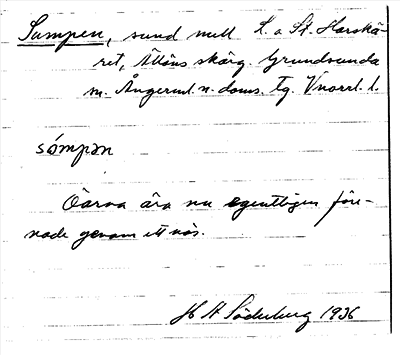 Sumpen, sund mell L. o St. Harskä-
ret, Ållöns skärg. Grundsunda
sn. Ångerml. n. doms. tg. Vnorrl. l.
sómpən
Öarna äro nu egentligen före-
nade genom ett näs.
H St Söderberg 1936